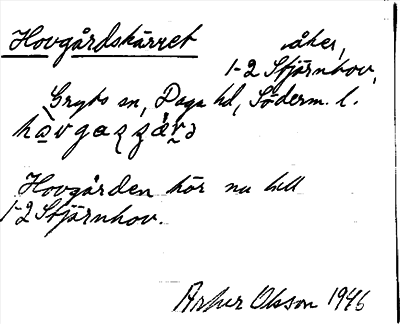 Hovgårdskärret åker,
1-2 Stjärnhov,
Gryts sn, Daga hd, Söderm. l.
Hovgården hör nu till
1-2 Stjärnhov.
Arthur Olsson 1946